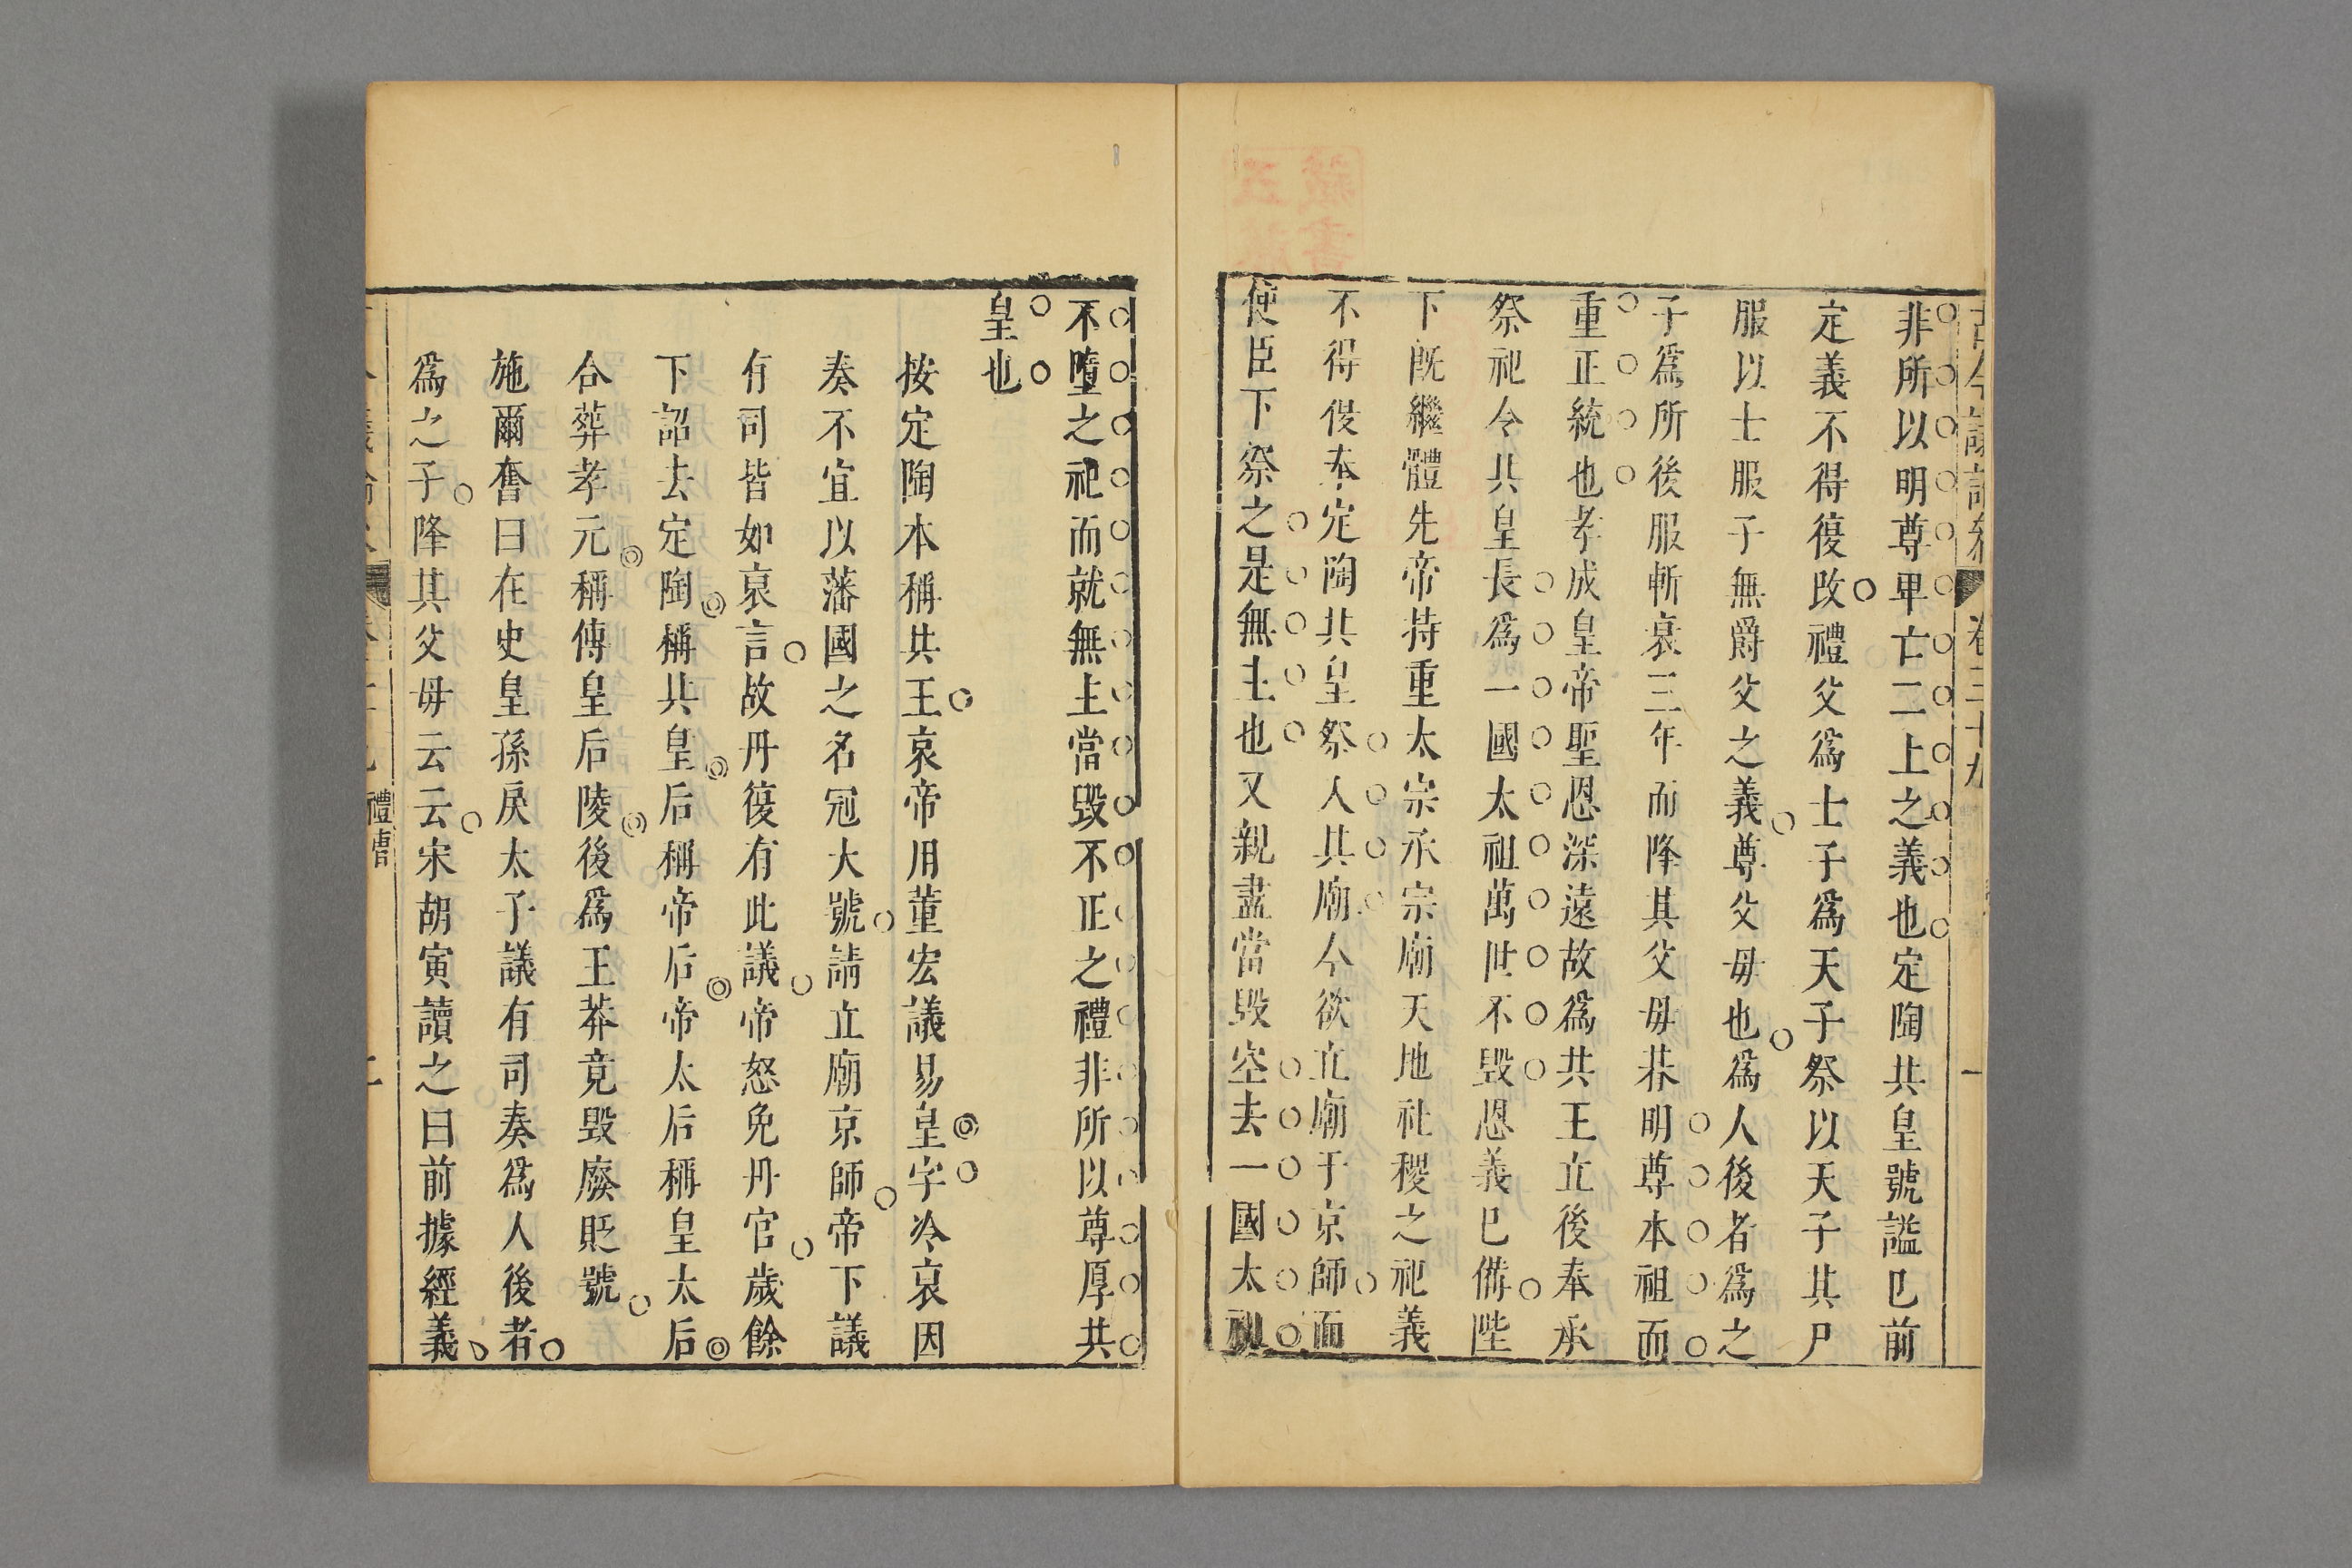 非所以明尊卑亡二上之義也定陶共皇號謚已前
定義不得復改禮父爲士子爲天子祭以天子其尸
服以士服子無爵父之義尊父毋也爲人後者爲之
子爲所後服斬衰三年而降其父毋朞明尊本祖而
重正統也孝成皇帝聖恩深遠故爲共王立後奉承
祭祀令共皇長爲一國太祖萬世不毀恩義已備陛
下既繼體先帝持重太宗承宗廟天地社稷之祀義
不得復奉定陶共皇祭入其廟今欲立廟于京師而
使臣下祭之是無主也又親盡當毀空去一國太祖
不墮之祀而就無主當毀不正之禮非所以尊厚共
皇也
按定陶本稱共王哀帝用董宏議易皇字冷哀因
奏不宜以藩國之名冠大號請立廟京師帝下議
有司皆如哀言故丹復有此議帝怒免丹官歲餘
下詔去定陶稱共皇后稱帝后帝太后稱皇太后
合葬孝元稱傅皇后陵後爲王莽竟毀廢貶號
施爾奮曰在史皇孫戾太子議有司奏爲人後者
爲之子降其父毋云云宋胡寅讀之曰前據經義
禮曹